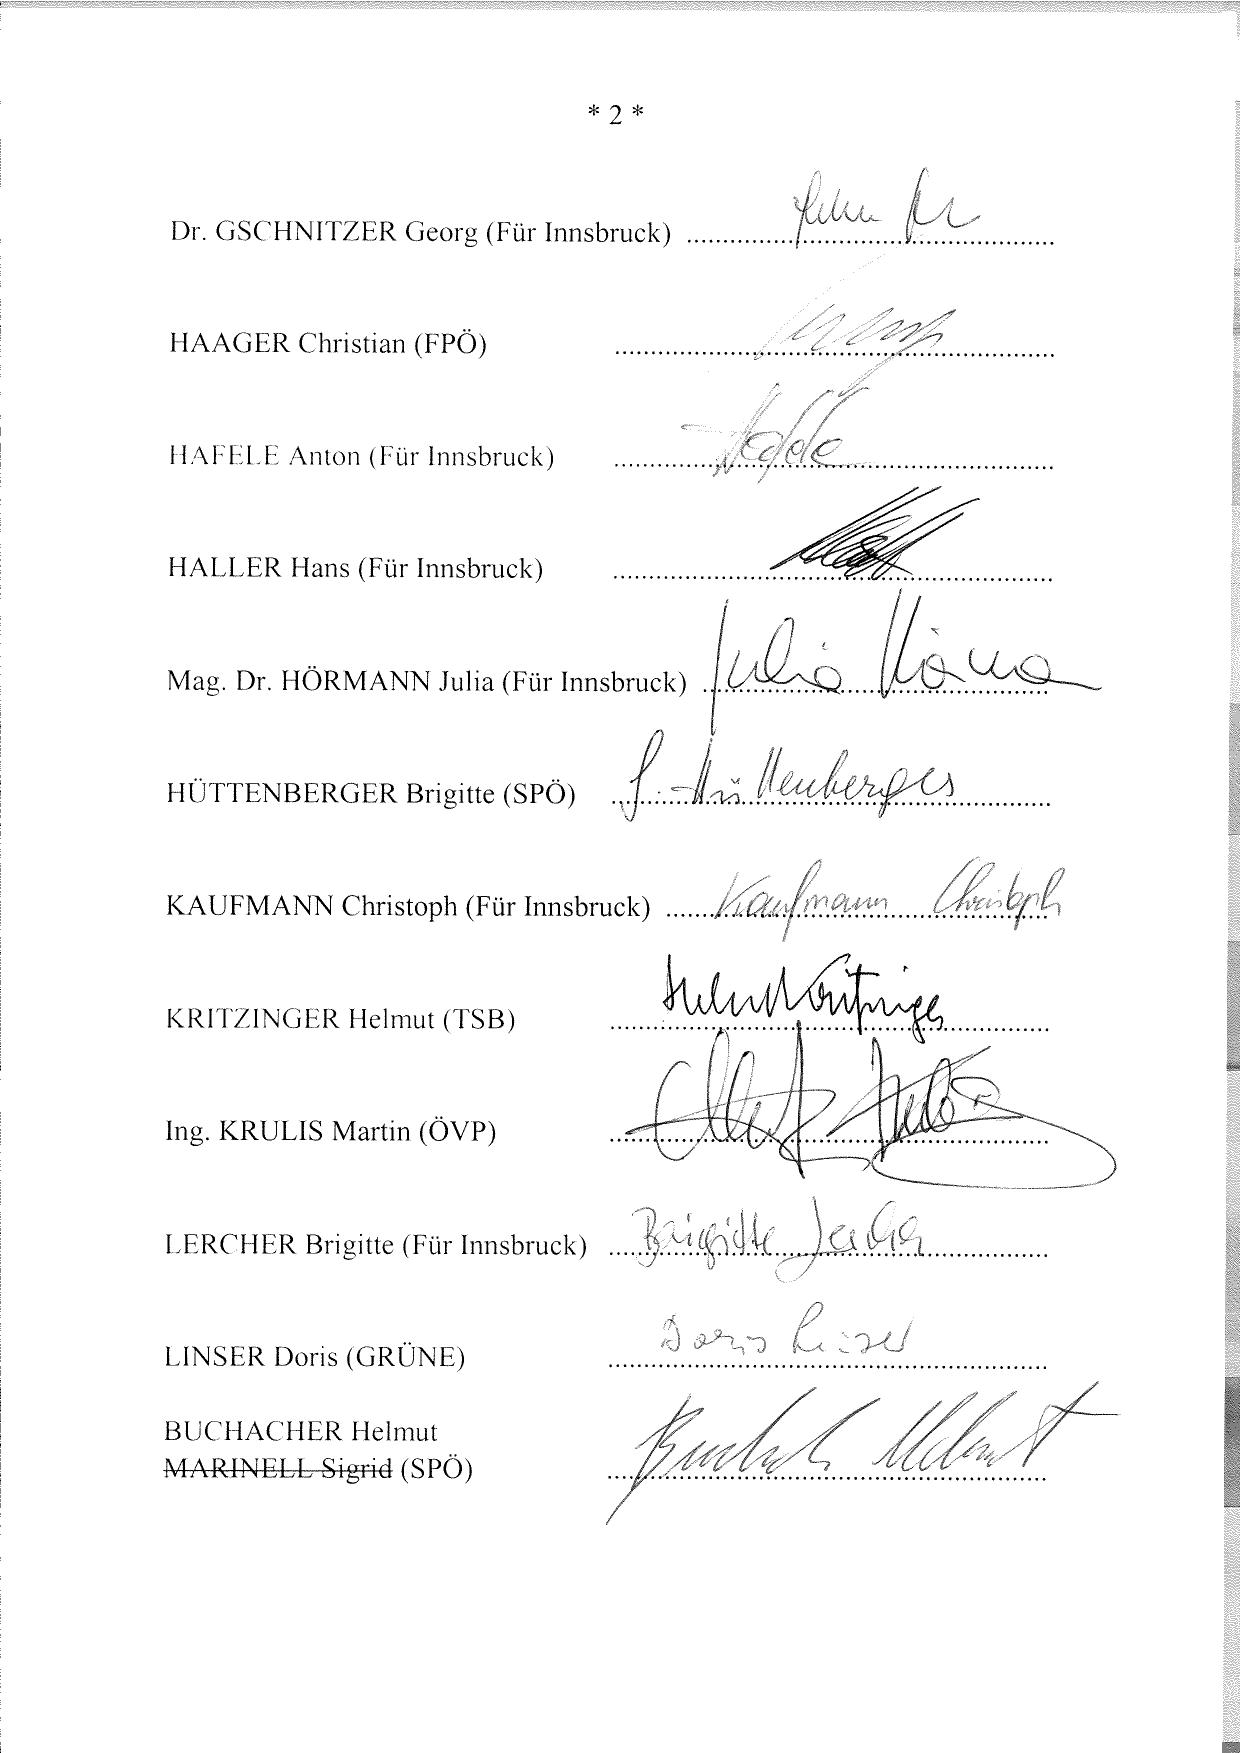 * 2 *
Dr. GSCHNITZER Georg (Für Innsbruck) ....................................................
HAAGER Christian (FPÖ) ..............................................................
HAFELE Anton (Für Innsbruck) Hafele
HALLER Hans (Für Innsbruck) ..............................................................
Mag. Dr. HÖRMANN Julia (Für Innsbruck) Julia Hörmann
HÜTTENBERGER Brigitte (SPÖ) Hüttenberger
KAUFMANN Christoph (Für Innsbruck) Kaufmann Christoph
KRITZINGER Helmut (TSB) Helmut Kritzinger
Ing. KRULIS Martin (ÖVP) ..............................................................
LERCHER Brigitte (Für Innsbruck) Brigitte Lercher
LINSER Doris (GRÜNE) Doris Linser
BUCHACHER Helmut
MARINELL Sigrid (SPÖ) Buchacher Helmut